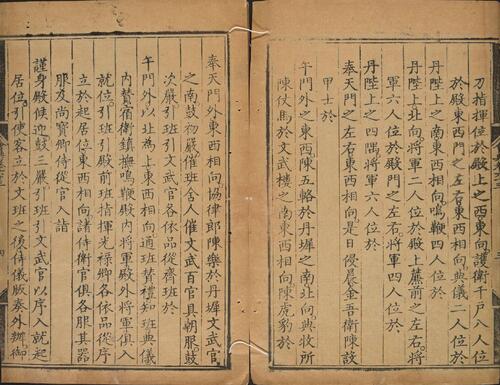 刀指揮位於殿上之西東向護衛千戶八人位
於殿東西門之左右東西相向典儀二人位於
丹陛上之南東西相向鳴鞭四人位於
丹陛上之南北向將軍二人位於殿上簾前之左右將
軍六人位於殿門之左右將軍四人位於
丹陛上之四隅將軍六人位於
奉天門之左右東西相向是日侵晨金吾衛陳設
甲士於
午門外之東西陳五輅於丹墀之南北向典牧所
陳仗馬於文武樓之南東西相向陳虎豹於
奉天門外東西相向協律郎陳樂於丹墀文武官
之南鼓初嚴催班舍人催文武百官具朝服鼓
次嚴引班引文武官各依品從齊班於
午門外以北為上東西相向通班贊禮知班典儀
內贊宿衛鎮撫鳴鞭殿內將軍殿外將軍俱入
就位引班引殿前班指揮光祿卿各依品從序
立於起居位東西相向諸侍衛官俱各服其器
服及尚寶卿侍從官入詣
謹身殿候迎鼓三嚴引班引文武官以序入就起
居位引使客立於文班之後侍儀版奏外辦御